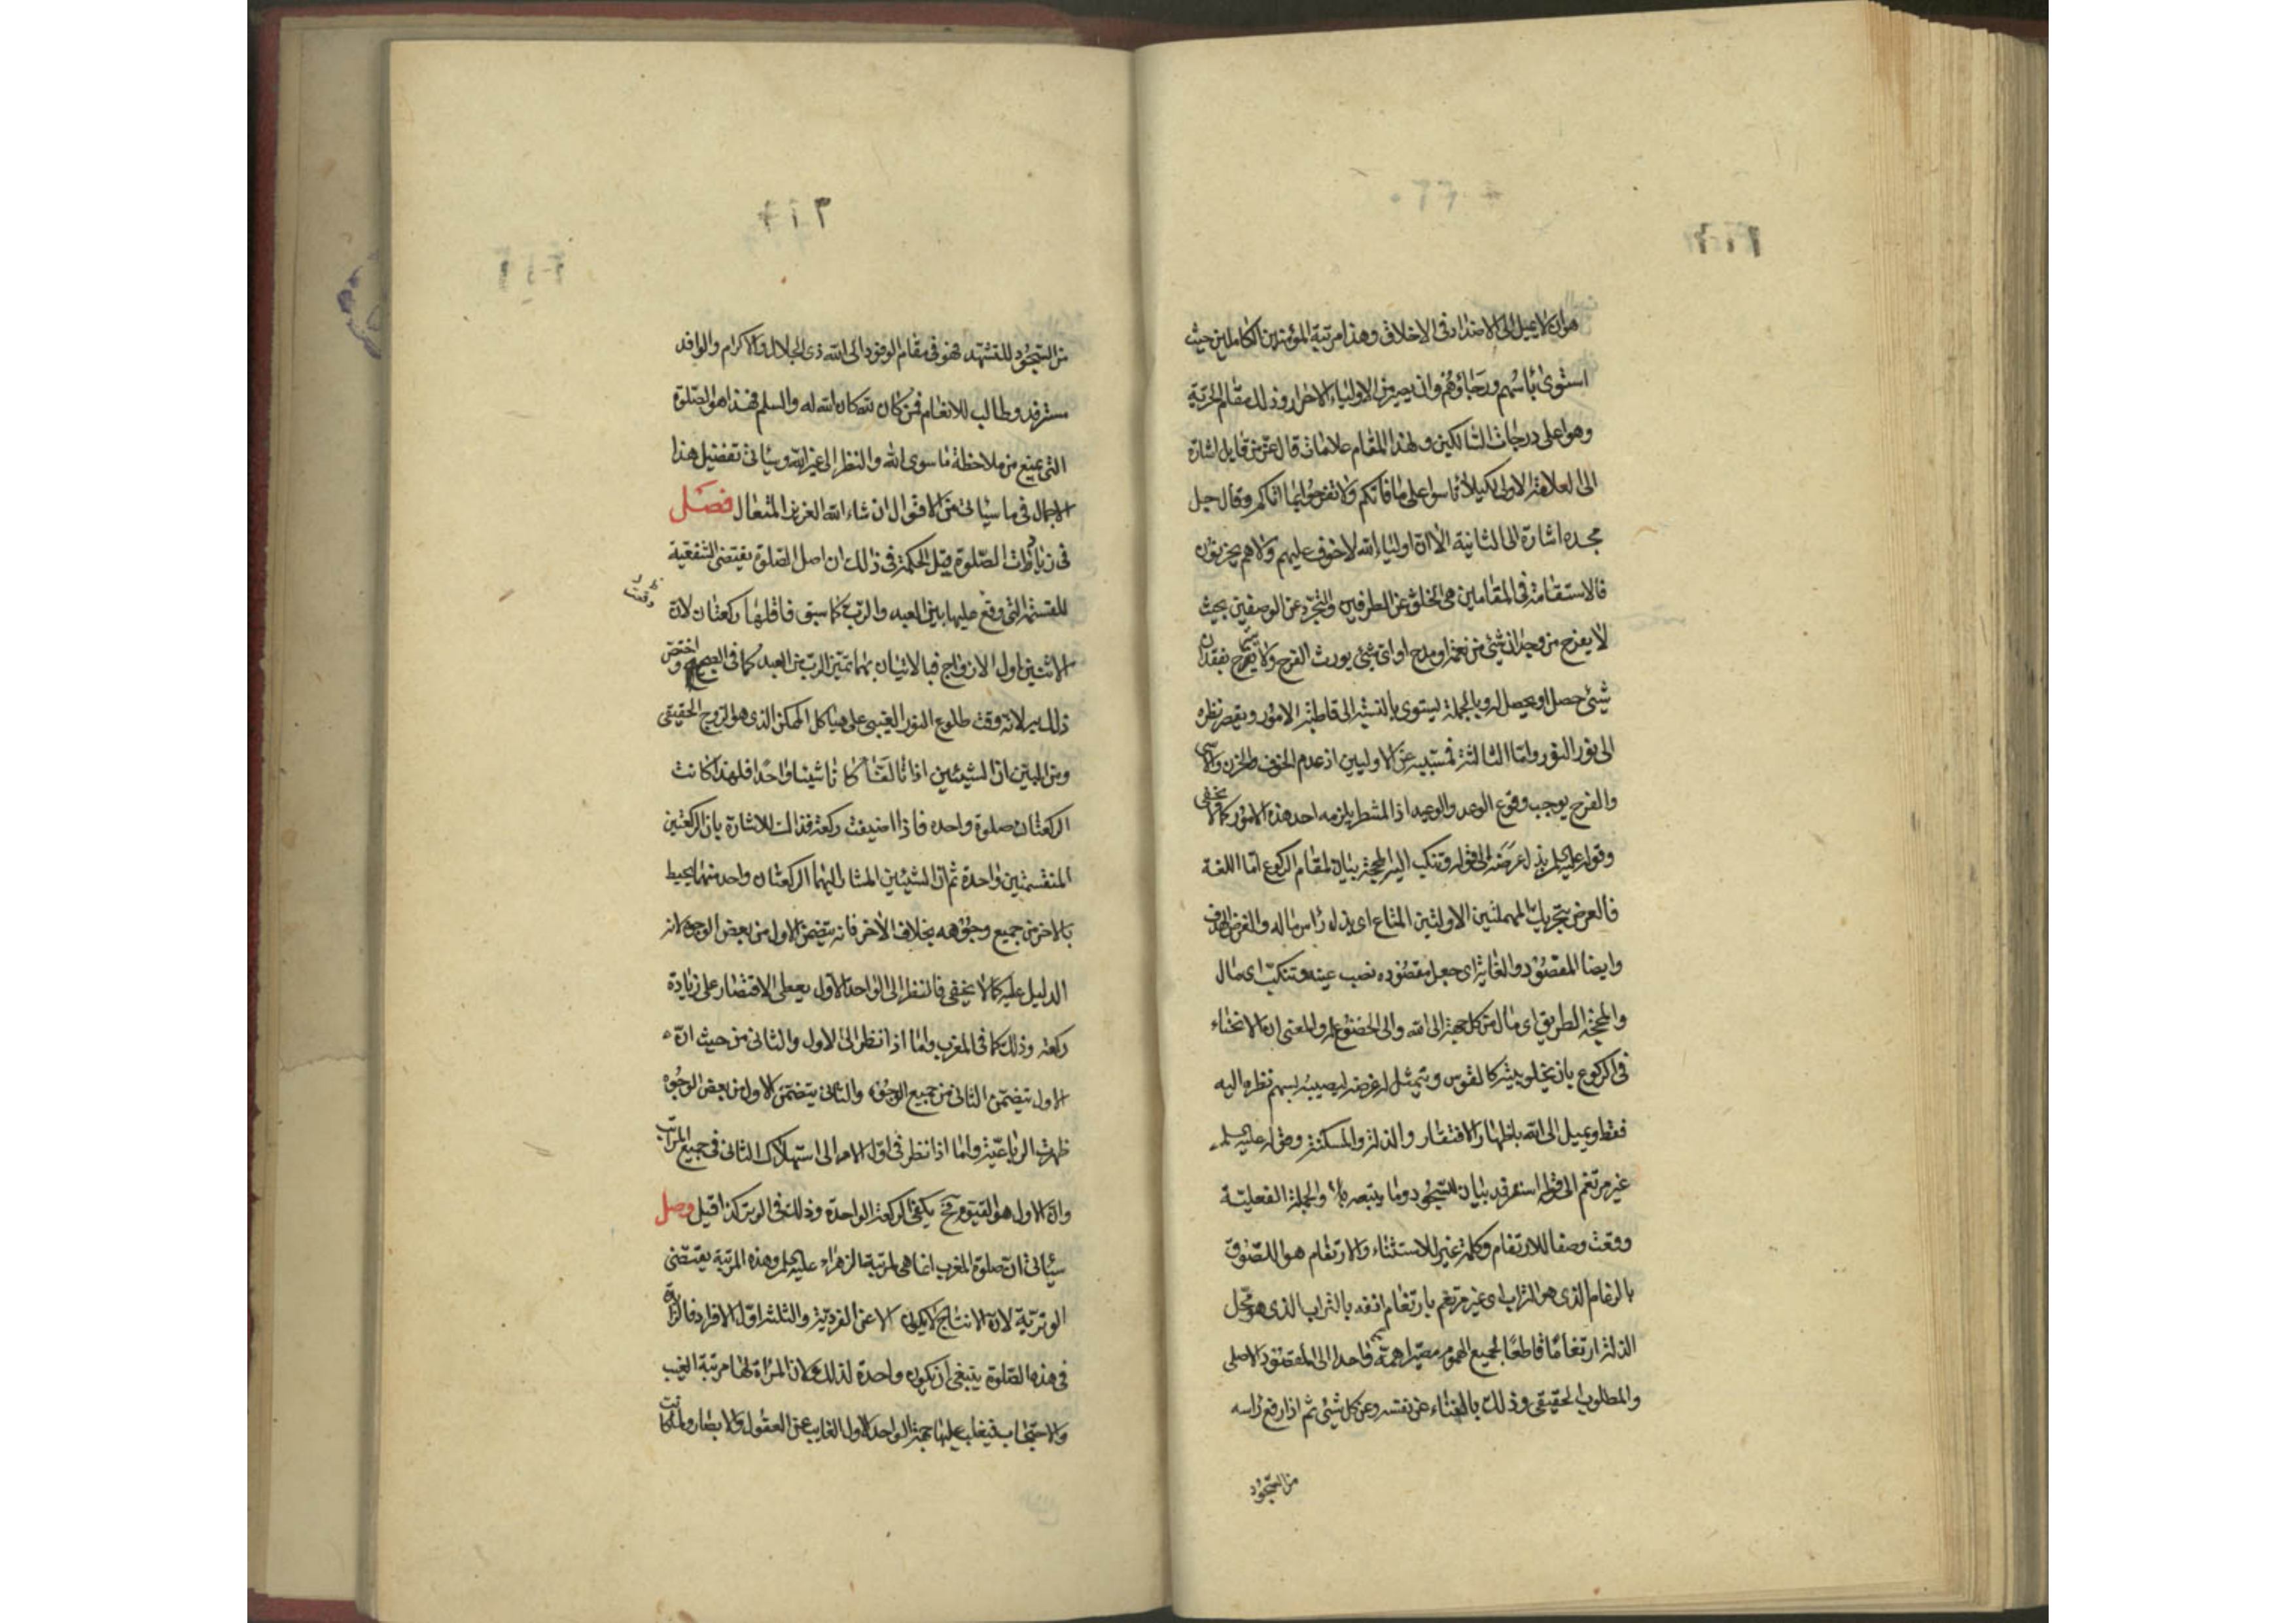 هو ان لا يميل الى الاضداد فى الاخلاق وهذا مرتبة المؤمنين الكاملين حيث
استوى باسهم ورخاؤهم وان يصير من الاولياء الاحرار وذلك مقام الحرية
وهو اعلى درجات السالكين ولهذا المقام علامات قال عز من قايل اشارة
الى العلامة الاولى لكيلا تاسوا على ما فاتكم ولا تفرحوا بما اتاكم وقال جل
مجده اشارة الى الثانية الا ان اولياء الله لا خوف عليهم ولا هم يحزنون
فالاستقامة فى المقامين هى الخلو عن الطرفين والتجرد عن الوصفين بحيث
لا يفرح من وجدان شيئ من نعمة او مدح او اى شيئ يورث الفرح ولا بفقدان
شيئ حصل او يحصل له وبالجملة يستوى بالنسبة الى قاطبة الامور ويقصر نظره
الى نور النور واما الثالثة من الاوليين اذ عدم الخوف والحزن والاسى
والفرح يوجب وقوع الوعد والوعيد اذ المشطر يلزمه احد هذه الامور كما لا يخفى
وقوله عليه السلم بذل عرضه الى قوله وتنكب اليه المحجة بيان لمقام الركوع اما اللغة
فالعرض بتحريك المهملتين الاوليين المتاع اى بذل راس ماله والغرض الهدف
وايضا المقصود والغاية اى جعل مقصوده نصب عينه وتنكب اى مال
والمحجة الطريق اى مال من كل جهة الى الله والى الخضوع له والمعنى ان الانحناء
فى الركوع بان كالقوس ويتمثل له غرضه ليصيبه بسهم نظره اليه
فقط ويميل الى الله باظهار الافتقار والذلة والمسكنة وقوله عليه السلم
غير مرتغم الى قوله استرفد بيان للسجود وما يتبعه والجملة الفعلية
وقعت وصفا للارتغام وكلمة غير للاستثناء والارتغام هو اللصوق
بالرغام الذى هو التراب اى غير مرتغم بارتغام انفه بالتراب الذى هو محل
الذلة ارتغاما قاطعا لجميع الهموم مصيرا همه واحدا الى المقصود الاصلى
والمطلوب الحقيقى وذلك بالفناء عن نفسه وعن كل شيئ ثم اذا رفع راسه
من السجود
من السجود للتشهد فهو فى مقام الوفود الى الله ذى الجلال والاكرام والوافد
مسترفد وطالب للانعام فمن كان لله كان الله له والسلم فهذا هو الصلوة
التى يمنع من ملاحظة ما سوى الله والنظر الى غير الله وسياتى تفضيل هذا
الاجمال فى ما سياتى من الاقوال ان شاء الله العزيز المتعال فصل
فى زيادات الصلوة قيل الحكمة فى ذلك ان اصل الصلوة يقتضى الشفعية
للقسمة التى وقع عليها بين العبد والرب كما سبق فاقلها ركعتان لان
وقعت
الاثنين اول الازواج فبالاتيان بهما تميز الرب من العبد كما فى الصبح واختص
ذلك به لانه وقت طلوع النور الغيبى على هياكل الممكن الذى هو الزوج الحقيقى
ومن المبين ان الشيئين اذا تالفا كانا شيئا واحدا فلهذا كانت
الركعتان صلوة واحده فاذا اضيفت ركعة فذلك للاشارة بان الركعتين
المنقسمتين واحدة ثم ان الشيئين المشار اليهما الركعتان واحد منهما يحيط
بالاخر من جميع وجوهه بخلاف الاخر فانه يتضمن الاول من بعض الوجوه لانه
الدليل عليه كما لا يخفى فالنظر الى الواحد الاول يعطى الاقتصار على زيادة
ركعة وذلك كما فى المغرب واما اذا نظر الى الاول والثانى من حيث ان
الاول يتضمن الثانى من جميع الوجوه والثانى يتضمن الاول من بعض الوجوه
ظهرت الرباعية واما اذا نظر فى اول الامر الى استهلاك الثانى فى جميع المراتب
وان الاول هو القيوم فح يكفى الركعة الواحدة وذلك فى الوتر كذا قيل وصل
سياتى ان صلوة المغرب انما هى لمرتبة الزهراء عليها السلم وهذه المرتبة يقتضى
الوترية لان الانتاج لا يكون الا عن الفردية والثلثة اول الافراد فالزيادة
فى هذه الصلوة ينبغى ان يكون واحدة لذلك ولان المراة لها مرتبة الغيب
والاحتجاب فيغلب عليها جهة الواحد الاول الغايب عن العقول والابصار ولما كانت